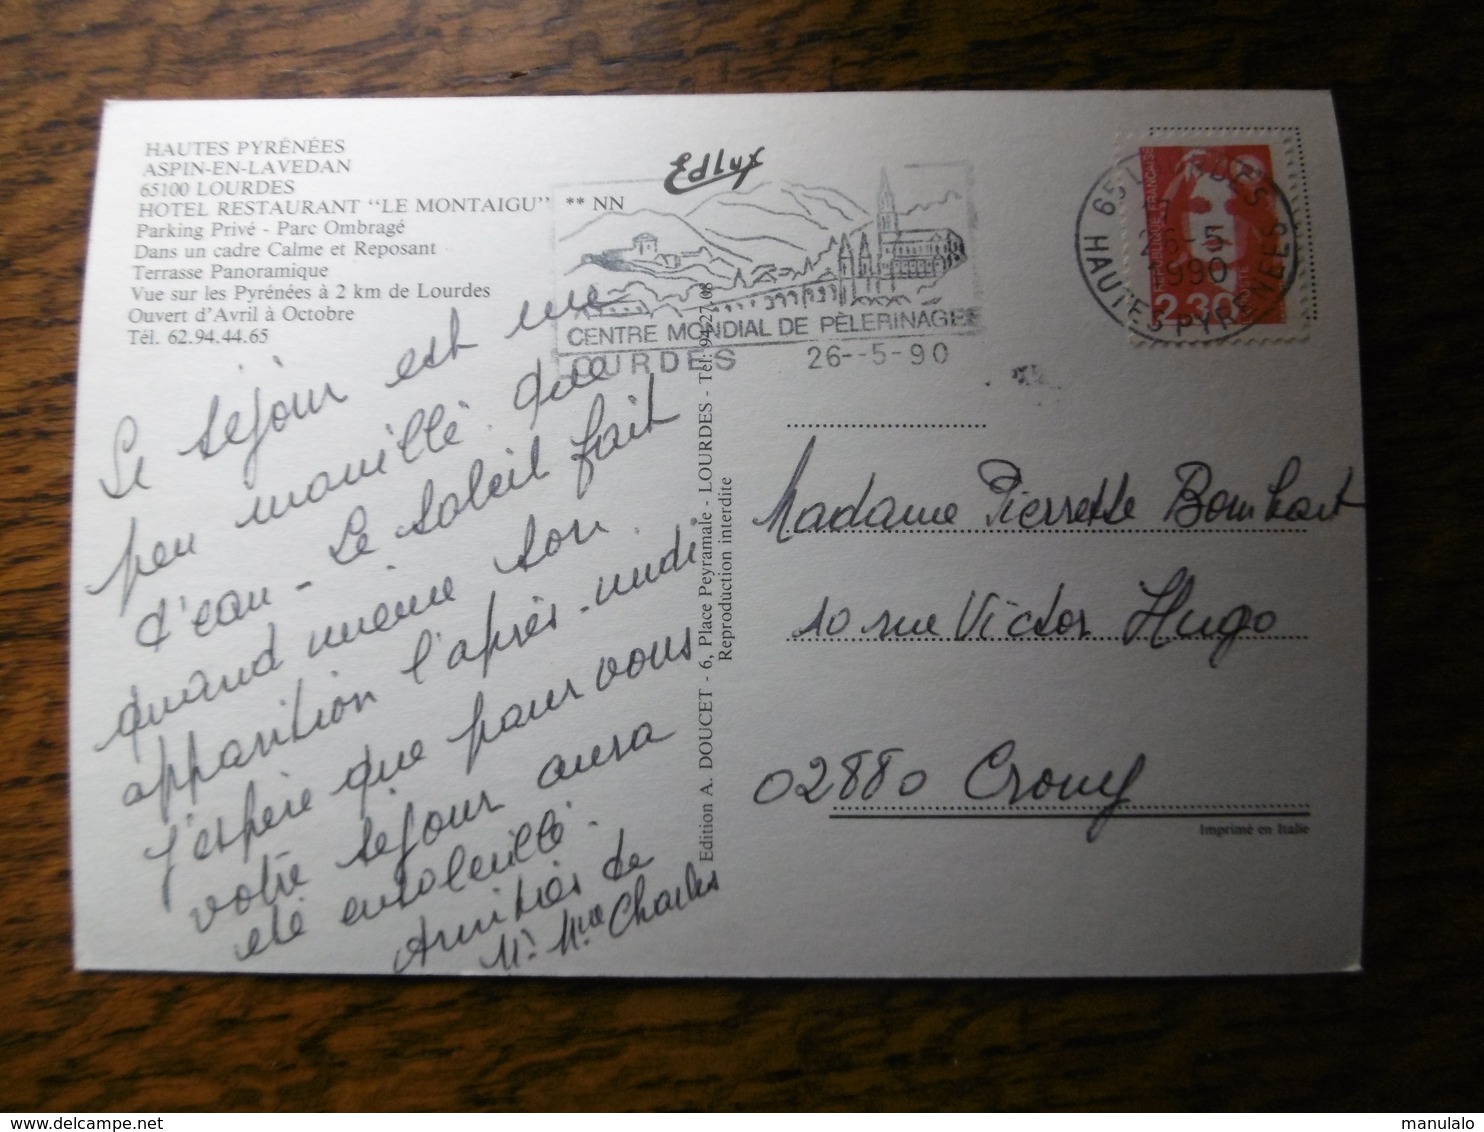 HAUTES PYRÉNÉES
ASPIN-EN-LAVEDAN
65100 LOURDES
HOTEL RESTAURANT "LE MONTAIGU" ** NN
Parking Privé - Parc Ombragé
Dans un cadre Calme et Reposant
Terrasse Panoramique
Vue sur les Pyrénées à 2 km de Lourdes
Ouvert d'Avril à Octobre
Tél. 62.94.44.65
Edlux
CENTRE MONDIAL DE PÈLERINAGE
LOURDES 26--5-90
65 LOURDES
26-5
1990
HAUTES PYRENEES
REPUBLIQUE FRANÇAISE
2.30
Le séjour est un
peu mouillé que
d'eau - Le soleil fait
quand même son
apparition l'après-midi.
J'espère que pour vous
votre séjour aura
été ensoleillé.
Amitiés de
Mr Mme Charles
Edition A. DOUCET - 6, Place Peyramale - LOURDES - Tél. 94-27-08
Reproduction interdite
Madame Pierrette Bomhart
10 rue Victor Hugo
02880 Crouy
Imprimé en Italie
manulalo